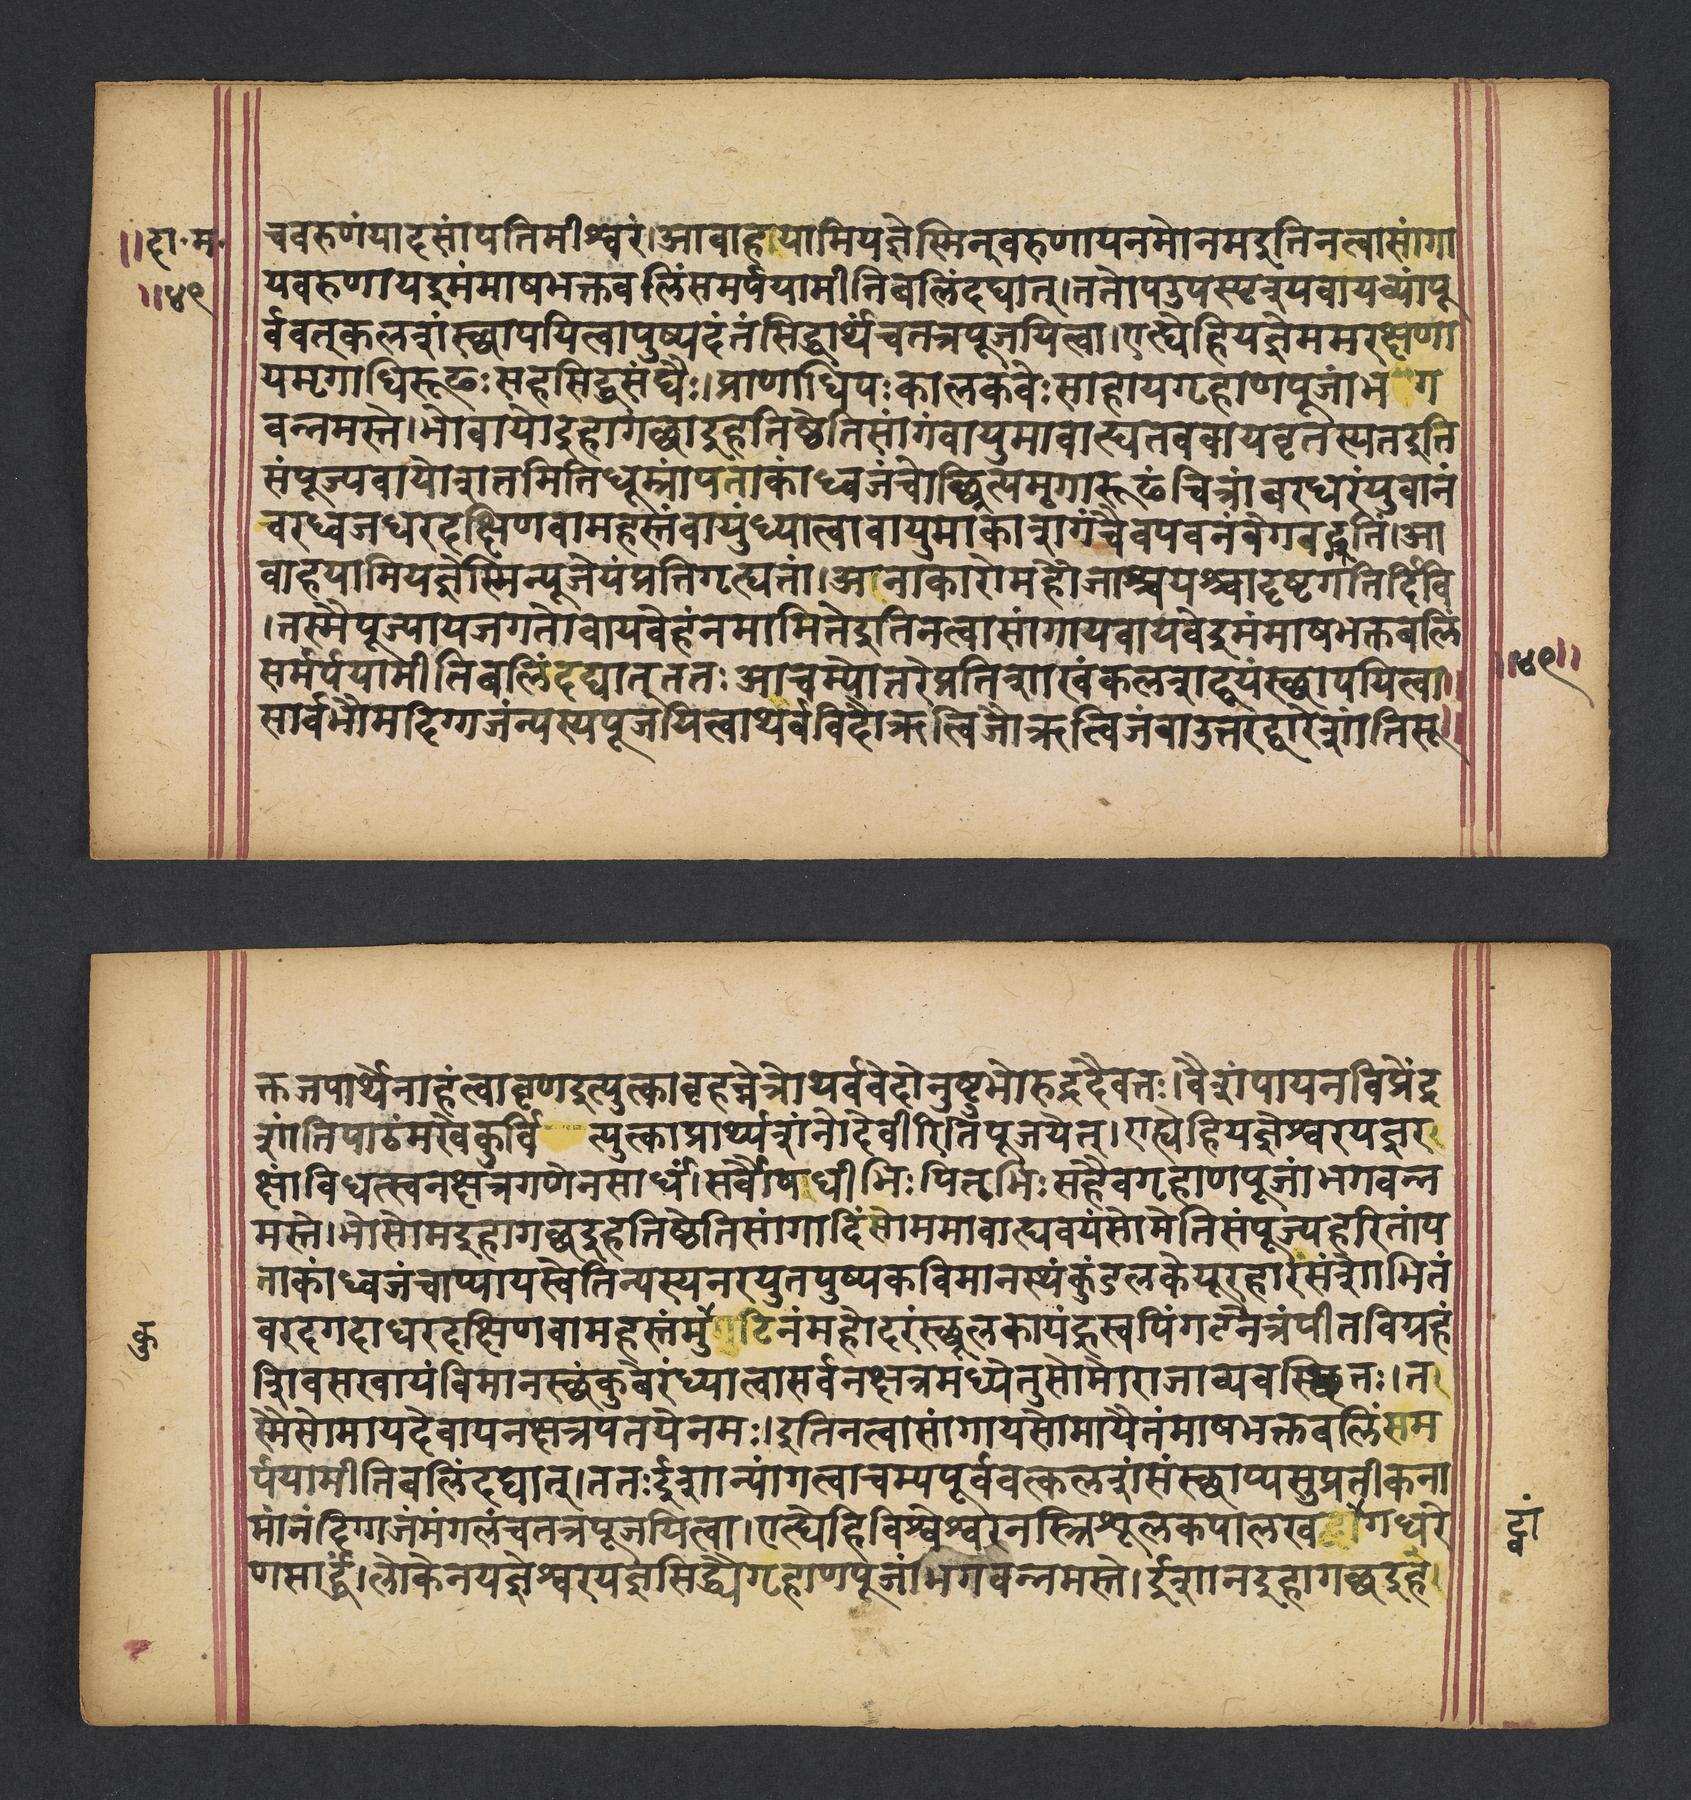 ॥दा॰म॰
॥४९
चवरुणंयादसांपतिमीश्वरं।आवाहयामियज्ञेस्मिन्वरुणायनमोनमइतिनत्वासांगा
यवरुणायइमंमाषभक्तबलिंसमर्पयामीतिबलिंदद्यात्।ततोपउपस्पृश्यवायव्यांपू
र्ववत्कलशंस्थापयित्वापुष्पदंतंसिद्धार्थंचतत्रपूजयित्वा।एह्येहियज्ञेममरक्षणा
यमृगाधिरूढःसहसिद्धसंघैः।प्राणाधिपःकालकवेःसाहायगृहाणपूजांभग
वन्नमस्ते।भोवायोइहागच्छइहतिष्ठेतिसांगंवायुमावाह्यतववायवृतस्पतइति
संपूज्यवायोशतमितिधूम्रांपताकांध्वजंचोच्छ्रित्यमृगारूढंचित्रांबरधरंयुवानं
वरध्वजधरदक्षिणवामहस्तंवायुंध्यात्वावायुमाकाशगंचैवपवनंवेगवद्गतिं।आ
वाहयामियज्ञेस्मिन्पूजेयंप्रतिगृह्यतां।अनाकारोमहौजाश्चयश्चादृष्टगतिर्दिवि
।तस्मैपूज्यायजगतोवायवेहंनमामितेइतिनत्वासांगायवायवेइमंमाषभक्तबलिं
समर्पयामीतिबलिंदद्यात्ततःआचम्योत्तरेप्रतिशाखंकलशद्वयंस्थापयित्वा॥
सार्वभौमदिग्गजंन्यस्यपूजयित्वाथर्वविदौऋत्विजौऋत्विजंवाउत्तरद्वारेशांतिसू॥
॥४९॥
क्तजपार्थेनाहंत्वावृणइत्युत्काबृहन्नेत्रोथर्ववेदोनुष्टुभोरुद्रदैवतः।वैशंपायनविप्रेंद्र
शांतिपाठंमखेकुर्वित्युत्काप्रार्थ्यशंनोदेवीरितिपूजयेत्।एह्येहियज्ञेश्वरयज्ञर
क्षांविधत्स्वनक्षत्रगणेनसार्धं।सर्वौषधीभिःपितृभिःसहैवगृहाणपूजांभगवन्न
मस्ते।भोसोमइहागच्छइहतिष्ठेतिसांगादिंसोममावाह्यवयंसोमेतिसंपूज्यहरितांप
ताकांध्वजंचाप्यायस्वेतिन्यस्यनरयुतपुष्पकविमानस्थंकुंडलकेयूरहारसंशोभितं
वरदगदाधरदक्षिणवामहस्तंमुकुटिनंमहोदरंस्थूलकायंह्रस्वपिंगलनेत्रंपीतविग्रहं
शिवसखायंविमानस्थंकुबेरंध्यात्वासर्वनक्षत्रमध्येतुसोमोराजाव्यवस्थितः।त
स्मैसोमायदेवायनक्षत्रपतयेनमः।इतिनत्वासांगायसोमायैतंमाषभक्तबलिंसम
र्पयामीतिबलिंदद्यात्।ततःईशान्यांगत्वाचम्यपूर्ववत्कलशंसंस्थाप्यसुप्रतीकना
मानंदिग्गजंमंगलंचतत्रपूजयित्वा।एह्येहिविश्वेश्वरनस्त्रिशूलकपालखट्वांगधरे
णसार्द्धं।लोकेनयज्ञेश्वरयज्ञसिद्ध्यैगृहाणपूजांभगवन्नमस्ते।ईशानइहागच्छइहे
कु
ट्वां